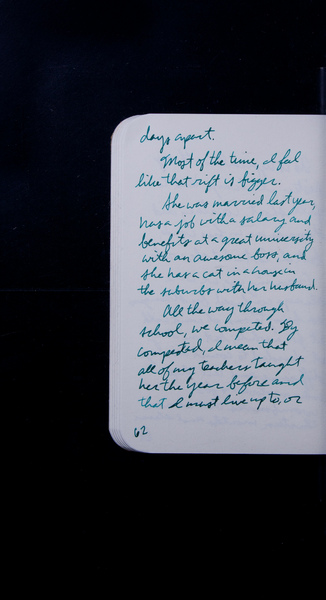 days apart.
Most of the time, I feel
like that rift is bigger.
She was married last year,
has a job with a salary and
benefits at a great university
with an awesome boss, and
she has a cat in a house in
the suburbs with her husband.
All the way through
school, we competed. By
competed, I mean that
all of my teachers taught
her the year before and
that I must live up to, or
62